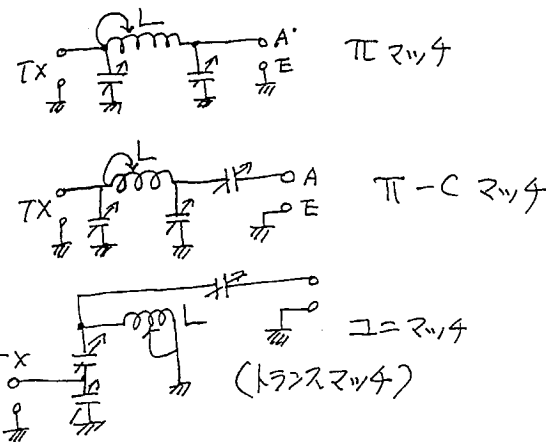 L
TX
A
E
πマッチ
L
TX
A
E
π-Cマッチ
L
TX
ユニマッチ
(トランスマッチ)